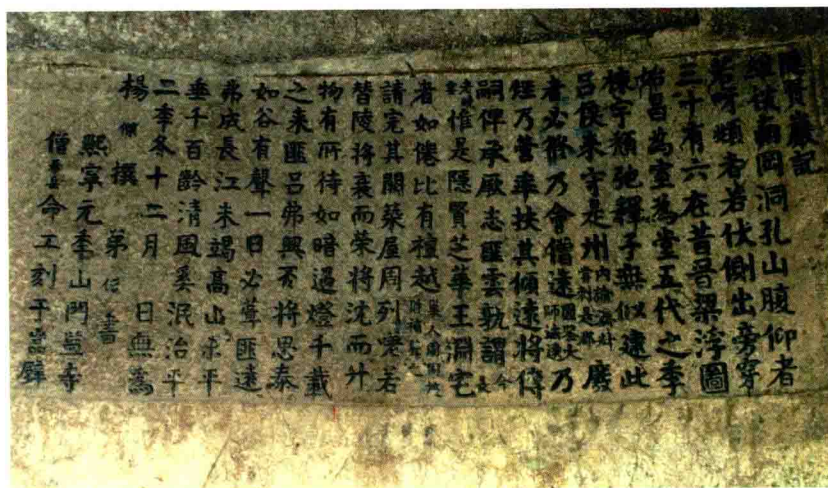 隱賢巖記
彼南岡洞孔山腹仰者
若呀頫者若伏側出旁穿
三十有六在昔晉梁浮圖
始昌為室為堂五代之季
棟宇頽弛釋子無似逮此
呂侯來守是州內翰 廢
者必脩乃會僧遠圓鑒大師法遠乃
經乃營率扶其傾遠將傳
嗣俾承厥志匪雲孰謂今長
惟是隱賢芝華王淵宅
者如倦比有檀越
請完其闕築屋周列 若
替陵將衰而榮將沈而升
物有所待如暗遇燈千載
之來匪呂弗興否將思泰
如谷有聲一日必葺匪遠
弗成長江未竭高山未平
垂千百齡清風奚泯治平
二秊冬十二月 日無為
楊傑撰 弟 書
熙寧元秊山門監寺
僧 命工刻于嵓壁